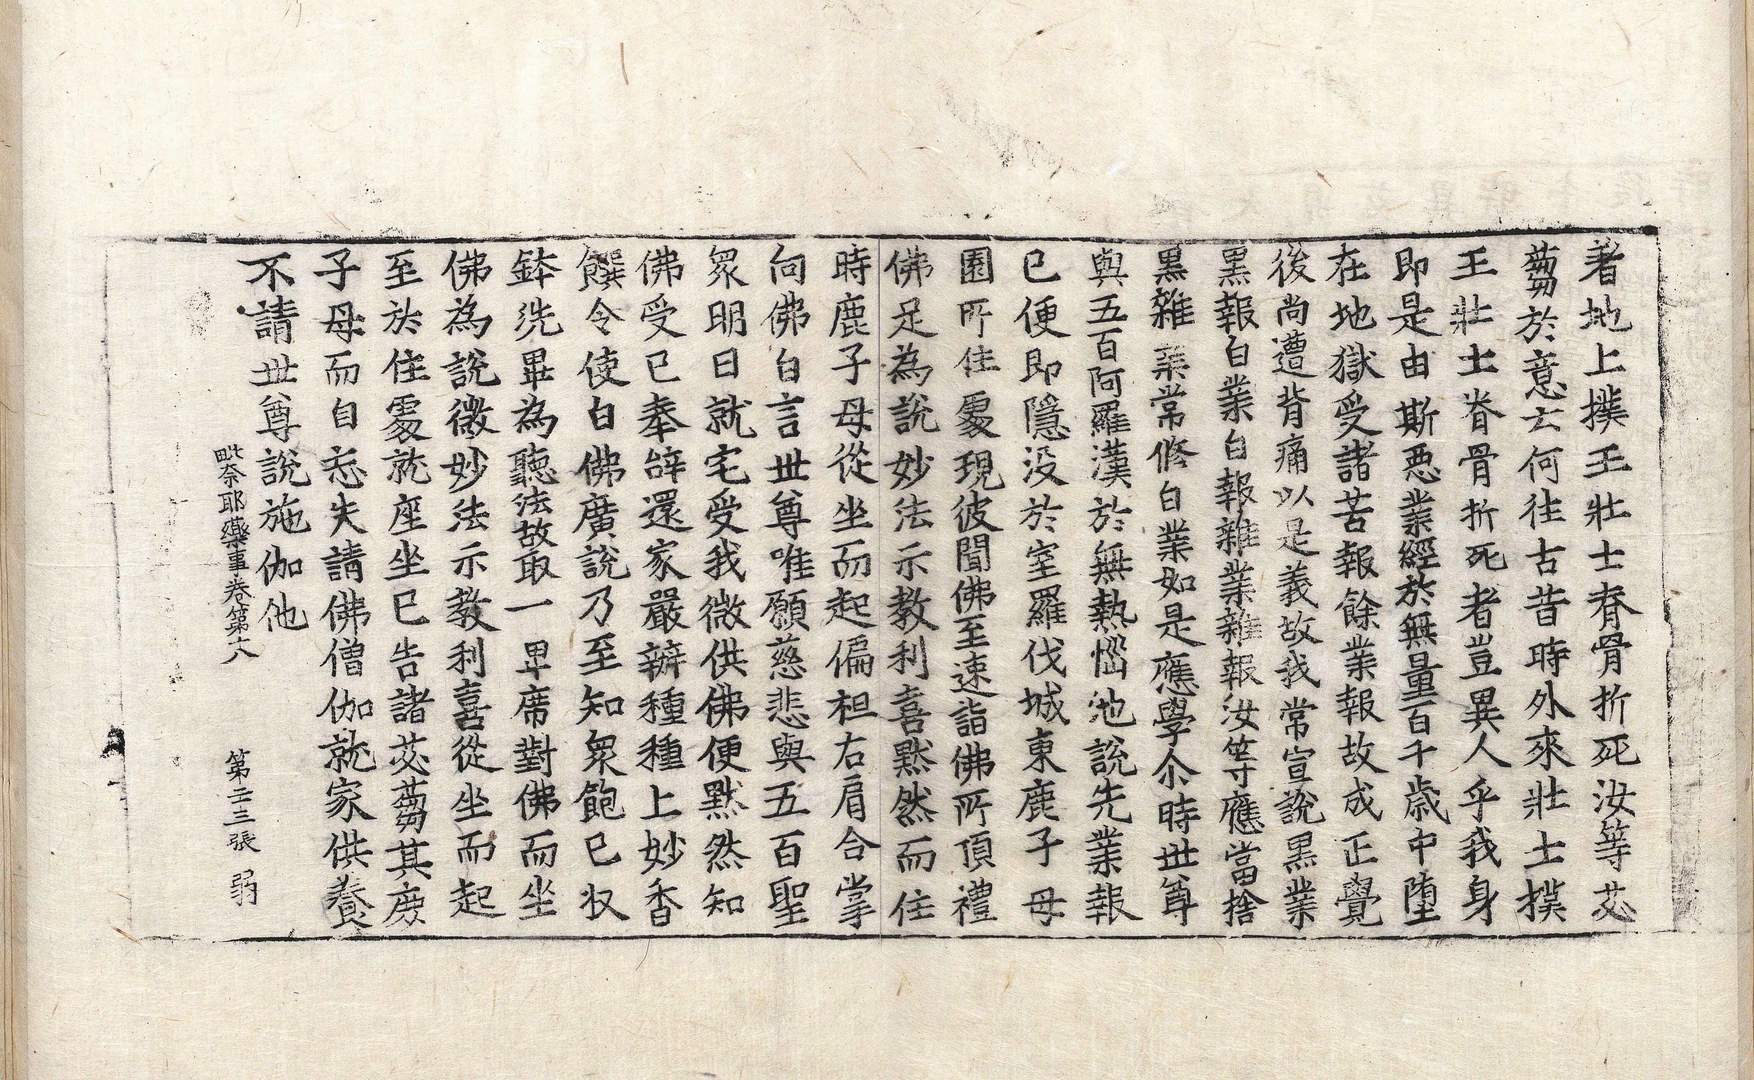 著地上撲王壯士脊骨折死汝等苾
蒭於意云何往古昔時外來壯士撲
王壯士脊骨折死者豈異人乎我身
即是由斯惡業經於無量百千歲中墮
在地獄受諸苦報餘業報故成正覺
後尚遭背痛以是義故我常宣說黑業
黑報白業白報雜業雜報汝等應當捨
黑雜業常修白業如是應學尒時世尊
與五百阿羅漢於無熱惱池說先業報
已便即隱没於室羅伐城東鹿子母
園所住䖏現彼聞佛至速詣佛所頂禮
佛足為說妙法示教利喜黙然而住
時鹿子母從坐而起偏袒右肩合掌
向佛白言世尊唯願慈悲與五百聖
衆明日就宅受我微供佛便黙然知
佛受已奉辝還家嚴辦種種上妙香
饌令使白佛廣說乃至知衆飽已收
鉢洗畢為聽法故取一卑席對佛而坐
佛為說微妙法示教利喜從坐而起
至於住䖏就座坐已告諸苾蒭其鹿
子母而自忘失請佛僧伽就家供養
不請世尊說施伽他
毗奈耶藥事卷第十八 第二十三張 弱